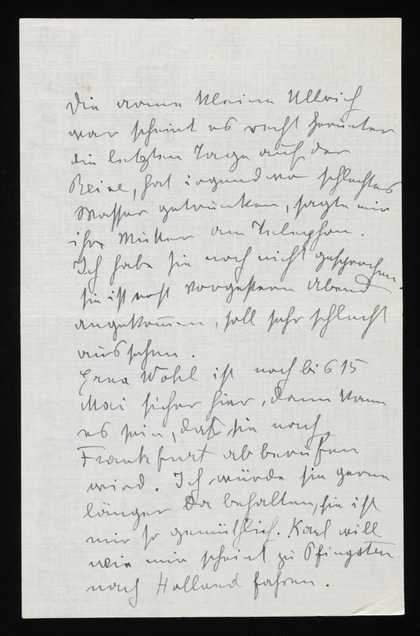 Die arme kleine Ullrich
war scheint es recht herunter
die letzten Tage auf der
Reise, hat irgendwo schlechtes
Wasser getrunken, sagte mir
ihre Mutter am Telephon.
Ich habe sie noch nicht gesprochen.
sie ist erst vorgestern Abend
angekommen, soll sehr schlecht
aussehen.
Erna Wohl ist noch bis 15
Mai sicher hier, dann kann
es sein, daß sie nach
Frankfurt abberufen
wird. Ich würde sie gerne
länger da behalten, sie ist
mir so gemütlich. Karl will
wie mir scheint zu Pfingsten
nach Holland fahren.